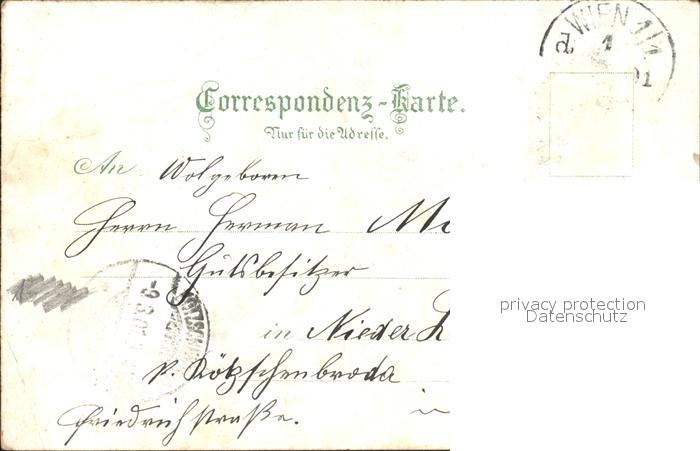 WIEN 1/1
1
01
Correspondenz-Karte.
Nur für die Adresse.
An Wolgeboren
Herrn Herman M
Gutsbesitzer
in Nieder L
p. Kötzschenbroda
Friedrichstraße.
privacy protection
Datenschutz